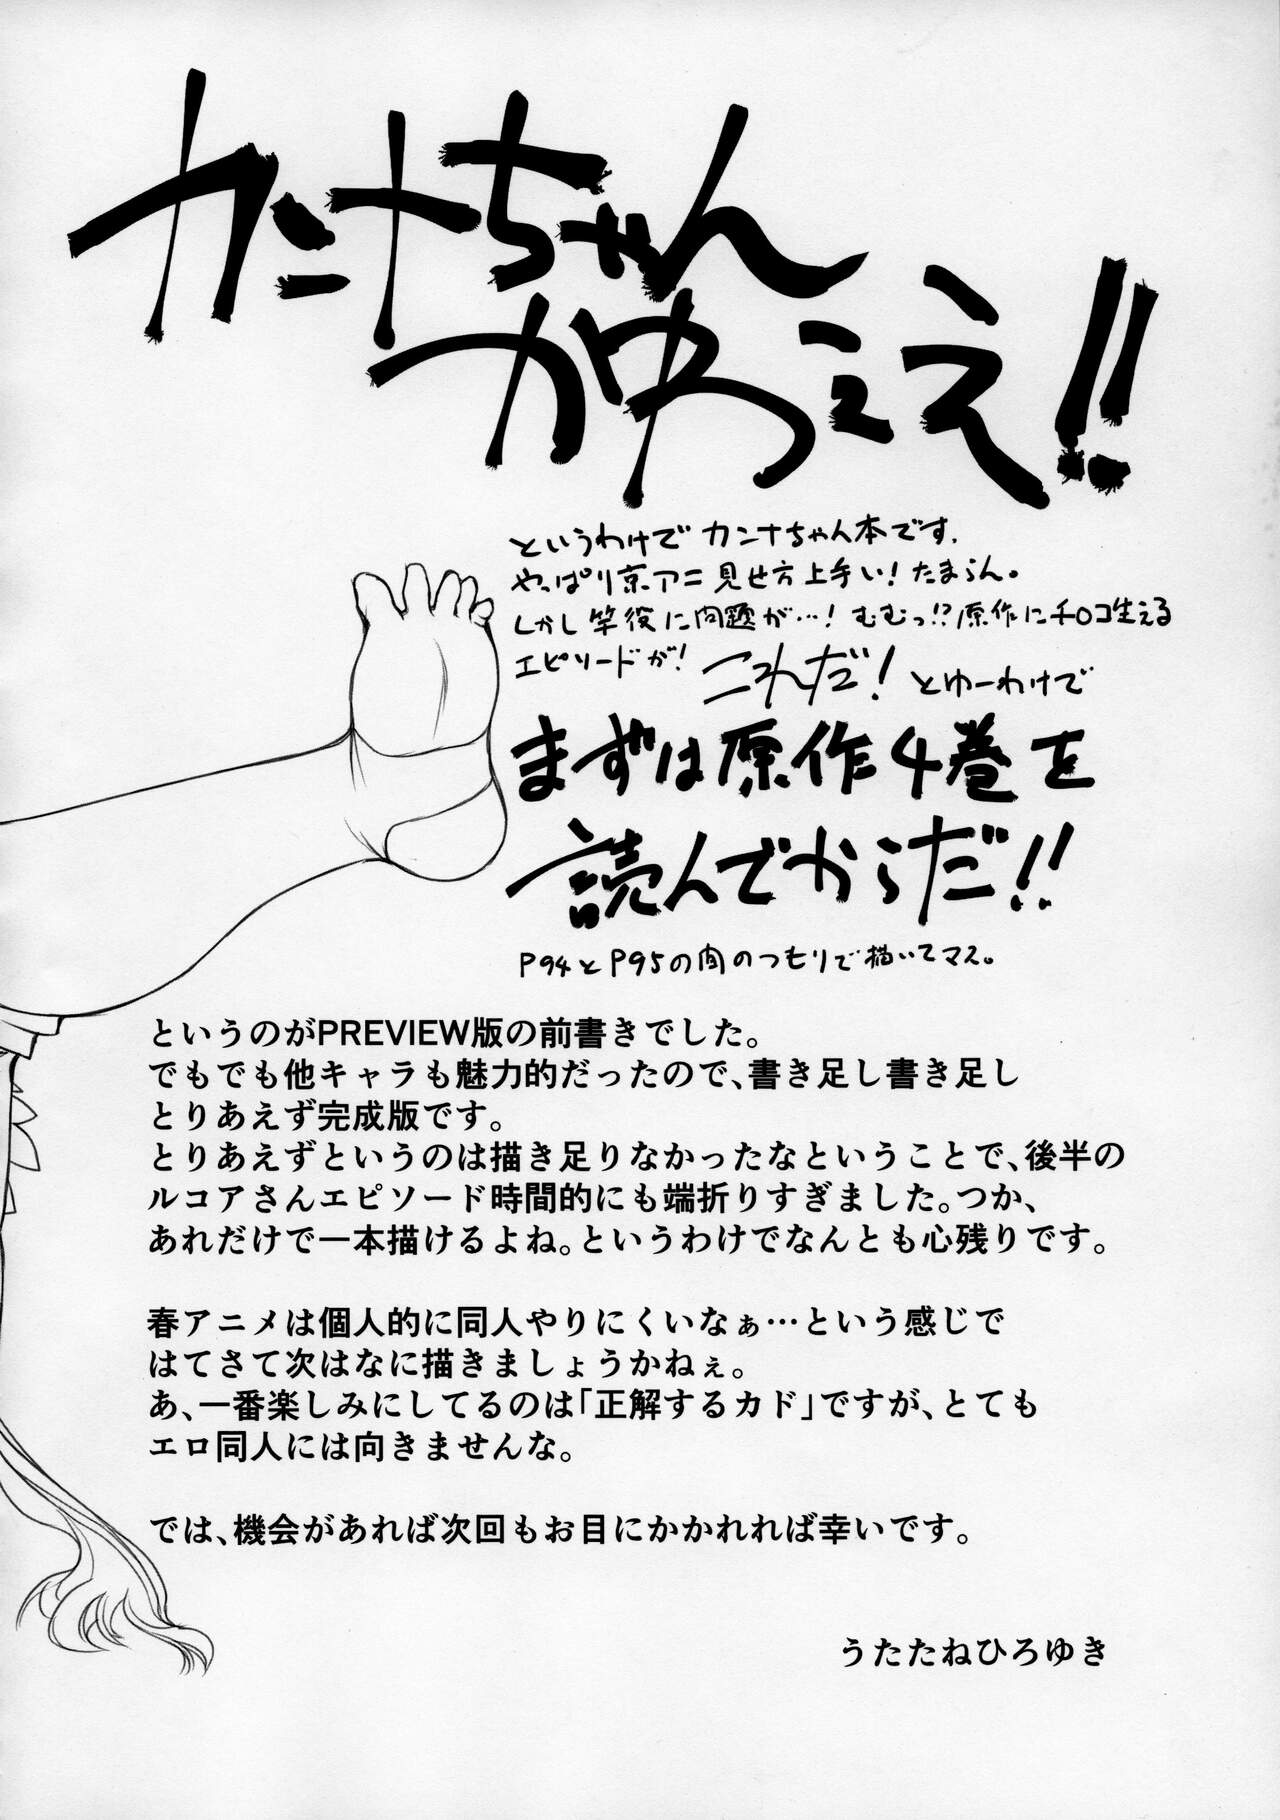 カンナちゃん
かわええ!!
というわけでカンナちゃん本です.
やっぱり京アニ見せ方上手い!たまらん。
しかし竿役に問題が…!むむっ!?原作にチ○コ生える
エピソードが!これだ!とゆーわけで
まずは原作4巻を
読んでからだ!!
P94とP95の間のつもりで描いてマス。
というのがPREVIEW版の前書きでした。
でもでも他キャラも魅力的だったので、書き足し書き足し
とりあえず完成版です。
とりあえずというのは描き足りなかったなということで、後半の
ルコアさんエピソード時間的にも端折りすぎました。つか、
あれだけで一本描けるよね。というわけでなんとも心残りです。
春アニメは個人的に同人やりにくいなぁ…という感じで
はてさて次はなに描きましょうかねぇ。
あ、一番楽しみにしてるのは「正解するカド」ですが、とても
エロ同人には向きませんな。
では、機会があれば次回もお目にかかれれば幸いです。
うたたねひろゆき